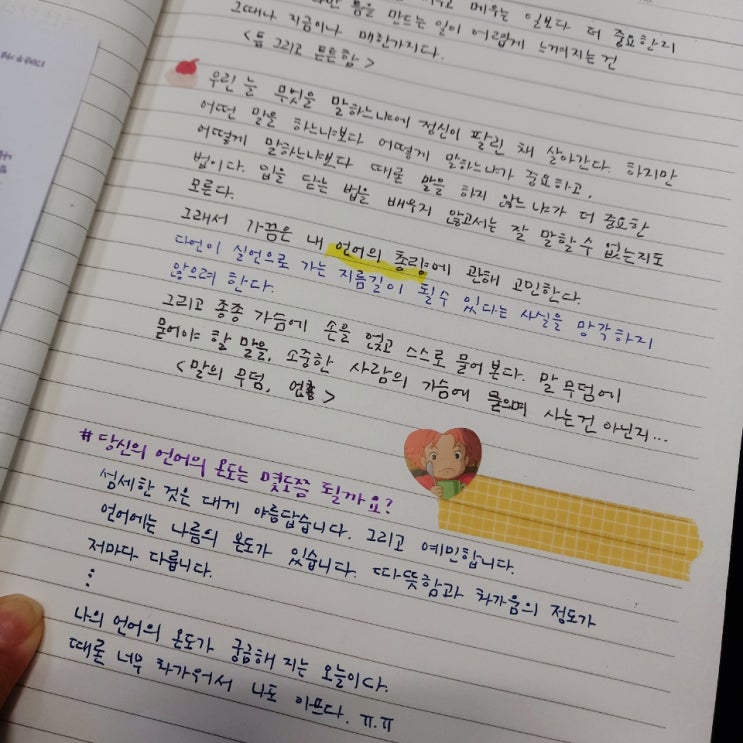 메우는 일보다 더 중요한지
틈을 만드는 일이 어렵게 느껴지는 건
그때나 지금이나 매한가지다.
<틈 그리고 튼튼함>
우린 늘 무엇을 말하느냐에 정신이 팔린 채 살아간다. 하지만
어떤 말을 하느냐보다 어떻게 말하느냐가 중요하고,
어떻게 말하느냐보다 때론 말을 하지 않느냐가 더 중요한
법이다. 입을 닫는 법을 배우지 않고서는 잘 말할 수 없는지도
모른다.
그래서 가끔은 내 언어의 총량에 관해 고민한다.
다언이 실언으로 가는 지름길이 될 수 있다는 사실을 망각하지
않으려 한다.
그리고 종종 가슴에 손을 얹고 스스로 물어 본다. 말 무덤에
묻어야 할 말을, 소중한 사람의 가슴에 묻으며 사는 건 아닌지...
<말의 무덤, 언총>
# 당신의 언어의 온도는 몇도쯤 될까요?
섬세한 것은 대게 아름답습니다. 그리고 예민합니다.
언어에는 나름의 온도가 있습니다. 따뜻함과 차가움의 정도가
저마다 다릅니다.
⋮
나의 언어의 온도가 궁금해 지는 오늘이다.
때론 너무 차가워서 나도 아프다. ㅠ.ㅠ